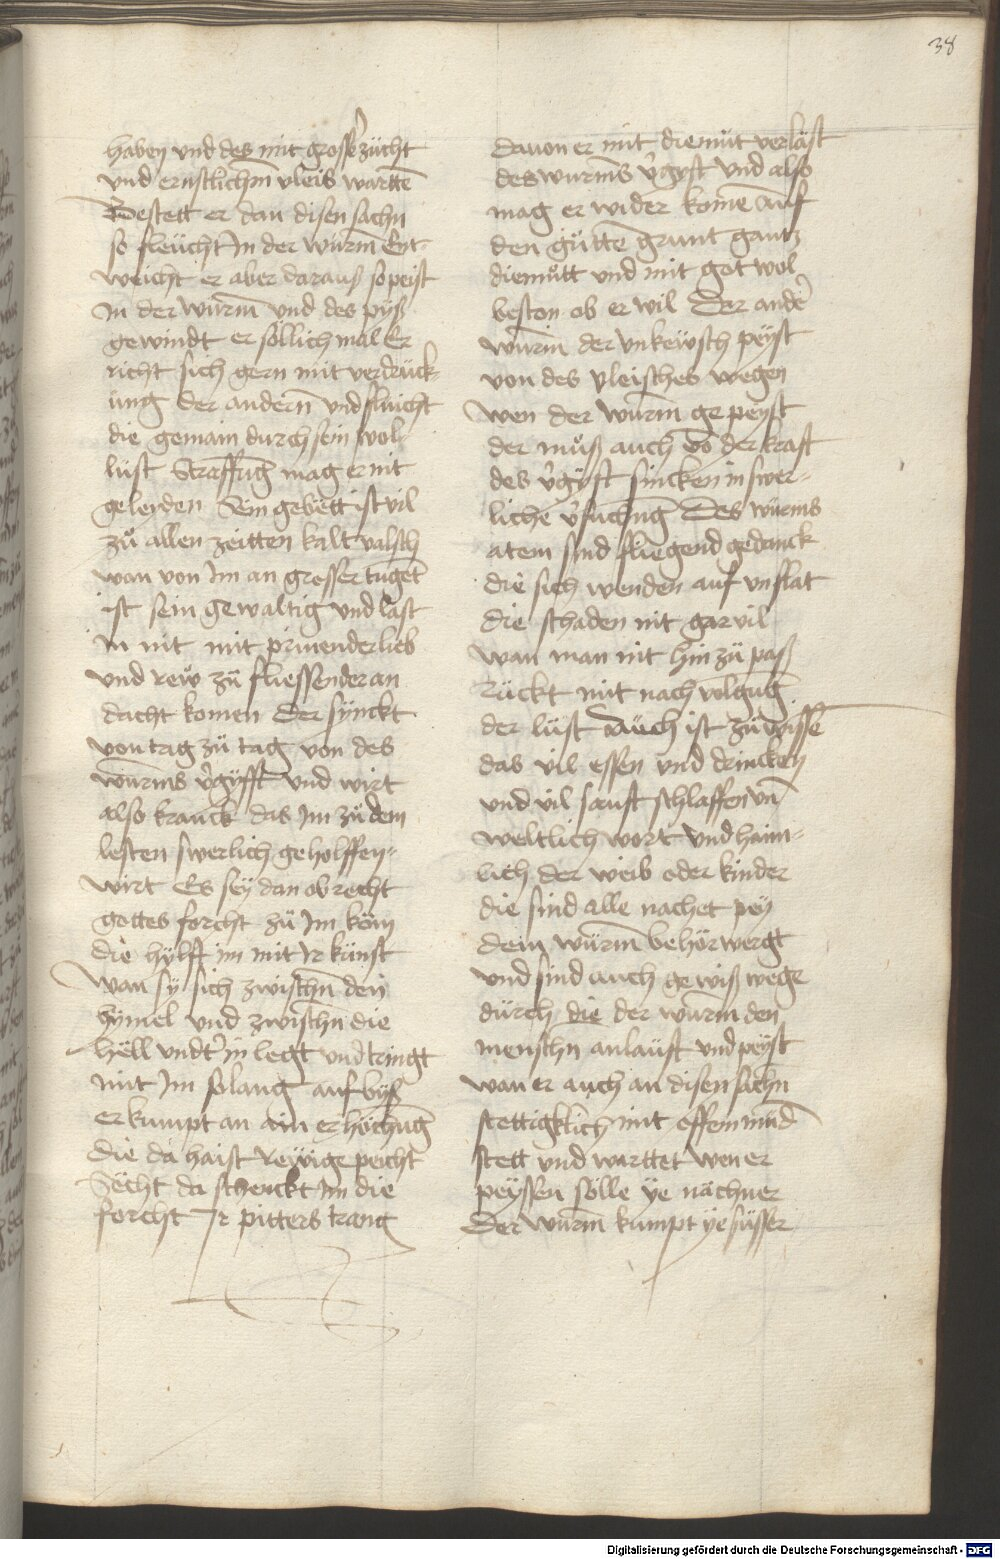 38
haben vnd des mit grosser zücht
vnd ernstlichm̄ vleis wartte
Bestett er dan disen sachn
so fleücht In der würm̄ Ent-
weicht er aber daraus so peist
In der würm̄ vnd des pyß
gewindt er söllich mal Er
richt sich gern mit verdrück-
üng der andern̄ vnd flücht
die gemain durch sein wol
lüst Straffūg mag er nit
geleyden Sein gebett ist vil
zů allen zeitten kalt valsch
wan von Im an grosser tuget
ist sein gewaltig vnd låst
In nit mit prinender lieb
vnd rew zü fliessender an
dacht komen Der synckt
von tag zü tag von des
würms v̉gyfft vnd wirt
also kranck das Im zü dem
lesten swerlich geholffen
wirt Es sey dan ob recht
gottes forcht zü Im köm
die hylfft im mit Ir künst
wan sy sich zwischn̄ den
hymel vnd zwischn̄ die
hell vndt' In legt vnd tringt
mit Im so lang auf byß
er kumpt an ain erhöchūg
die da haist reẅige peicht
Secht da schenckt Im die
forcht Ir pitters trang
dauon er mit diemüt verläst
des wurms v̉gyft vnd also
mag er wider komē auf
den gütte grunt gantz
diemůtt vnd mit got wol
beston ob er wil Der ander
würm̄ der vnkeüsch peyst
von des vleisches wegen
wen der würm̄ gepeyst
der můß auch vō der kraft
des v̉gyft sincken in swer-
liche v̉suchūg Des würms
atem sind fliegend gedanck
die sich wenden auf vnflat
die schaden nit gar vil
wan man nit hin zü paß
rückt mit nach volgūg
der lüst Auch ist zü wissē
das vil essen vnd drincken
vnd vil sanft schlaffen vn̄
weltlich wort vnd haim-
lich der weib oder kinder
die sind alle nachet pey
dem würm̄ behör wergt
vnd sind auch gewiß wege
dürch die der würm̄ den
menschn̄ anlaüft vnd peyst
wan er auch an disen sachn̄
stettigklich mit offem mūd
stett vnd warttet wen er
peyssen sölle ye nächner
Der würm̄ kumpt ye süsser
Digitalisierung gefördert durch die Deutsche Forschungsgemeinschaft - DFG